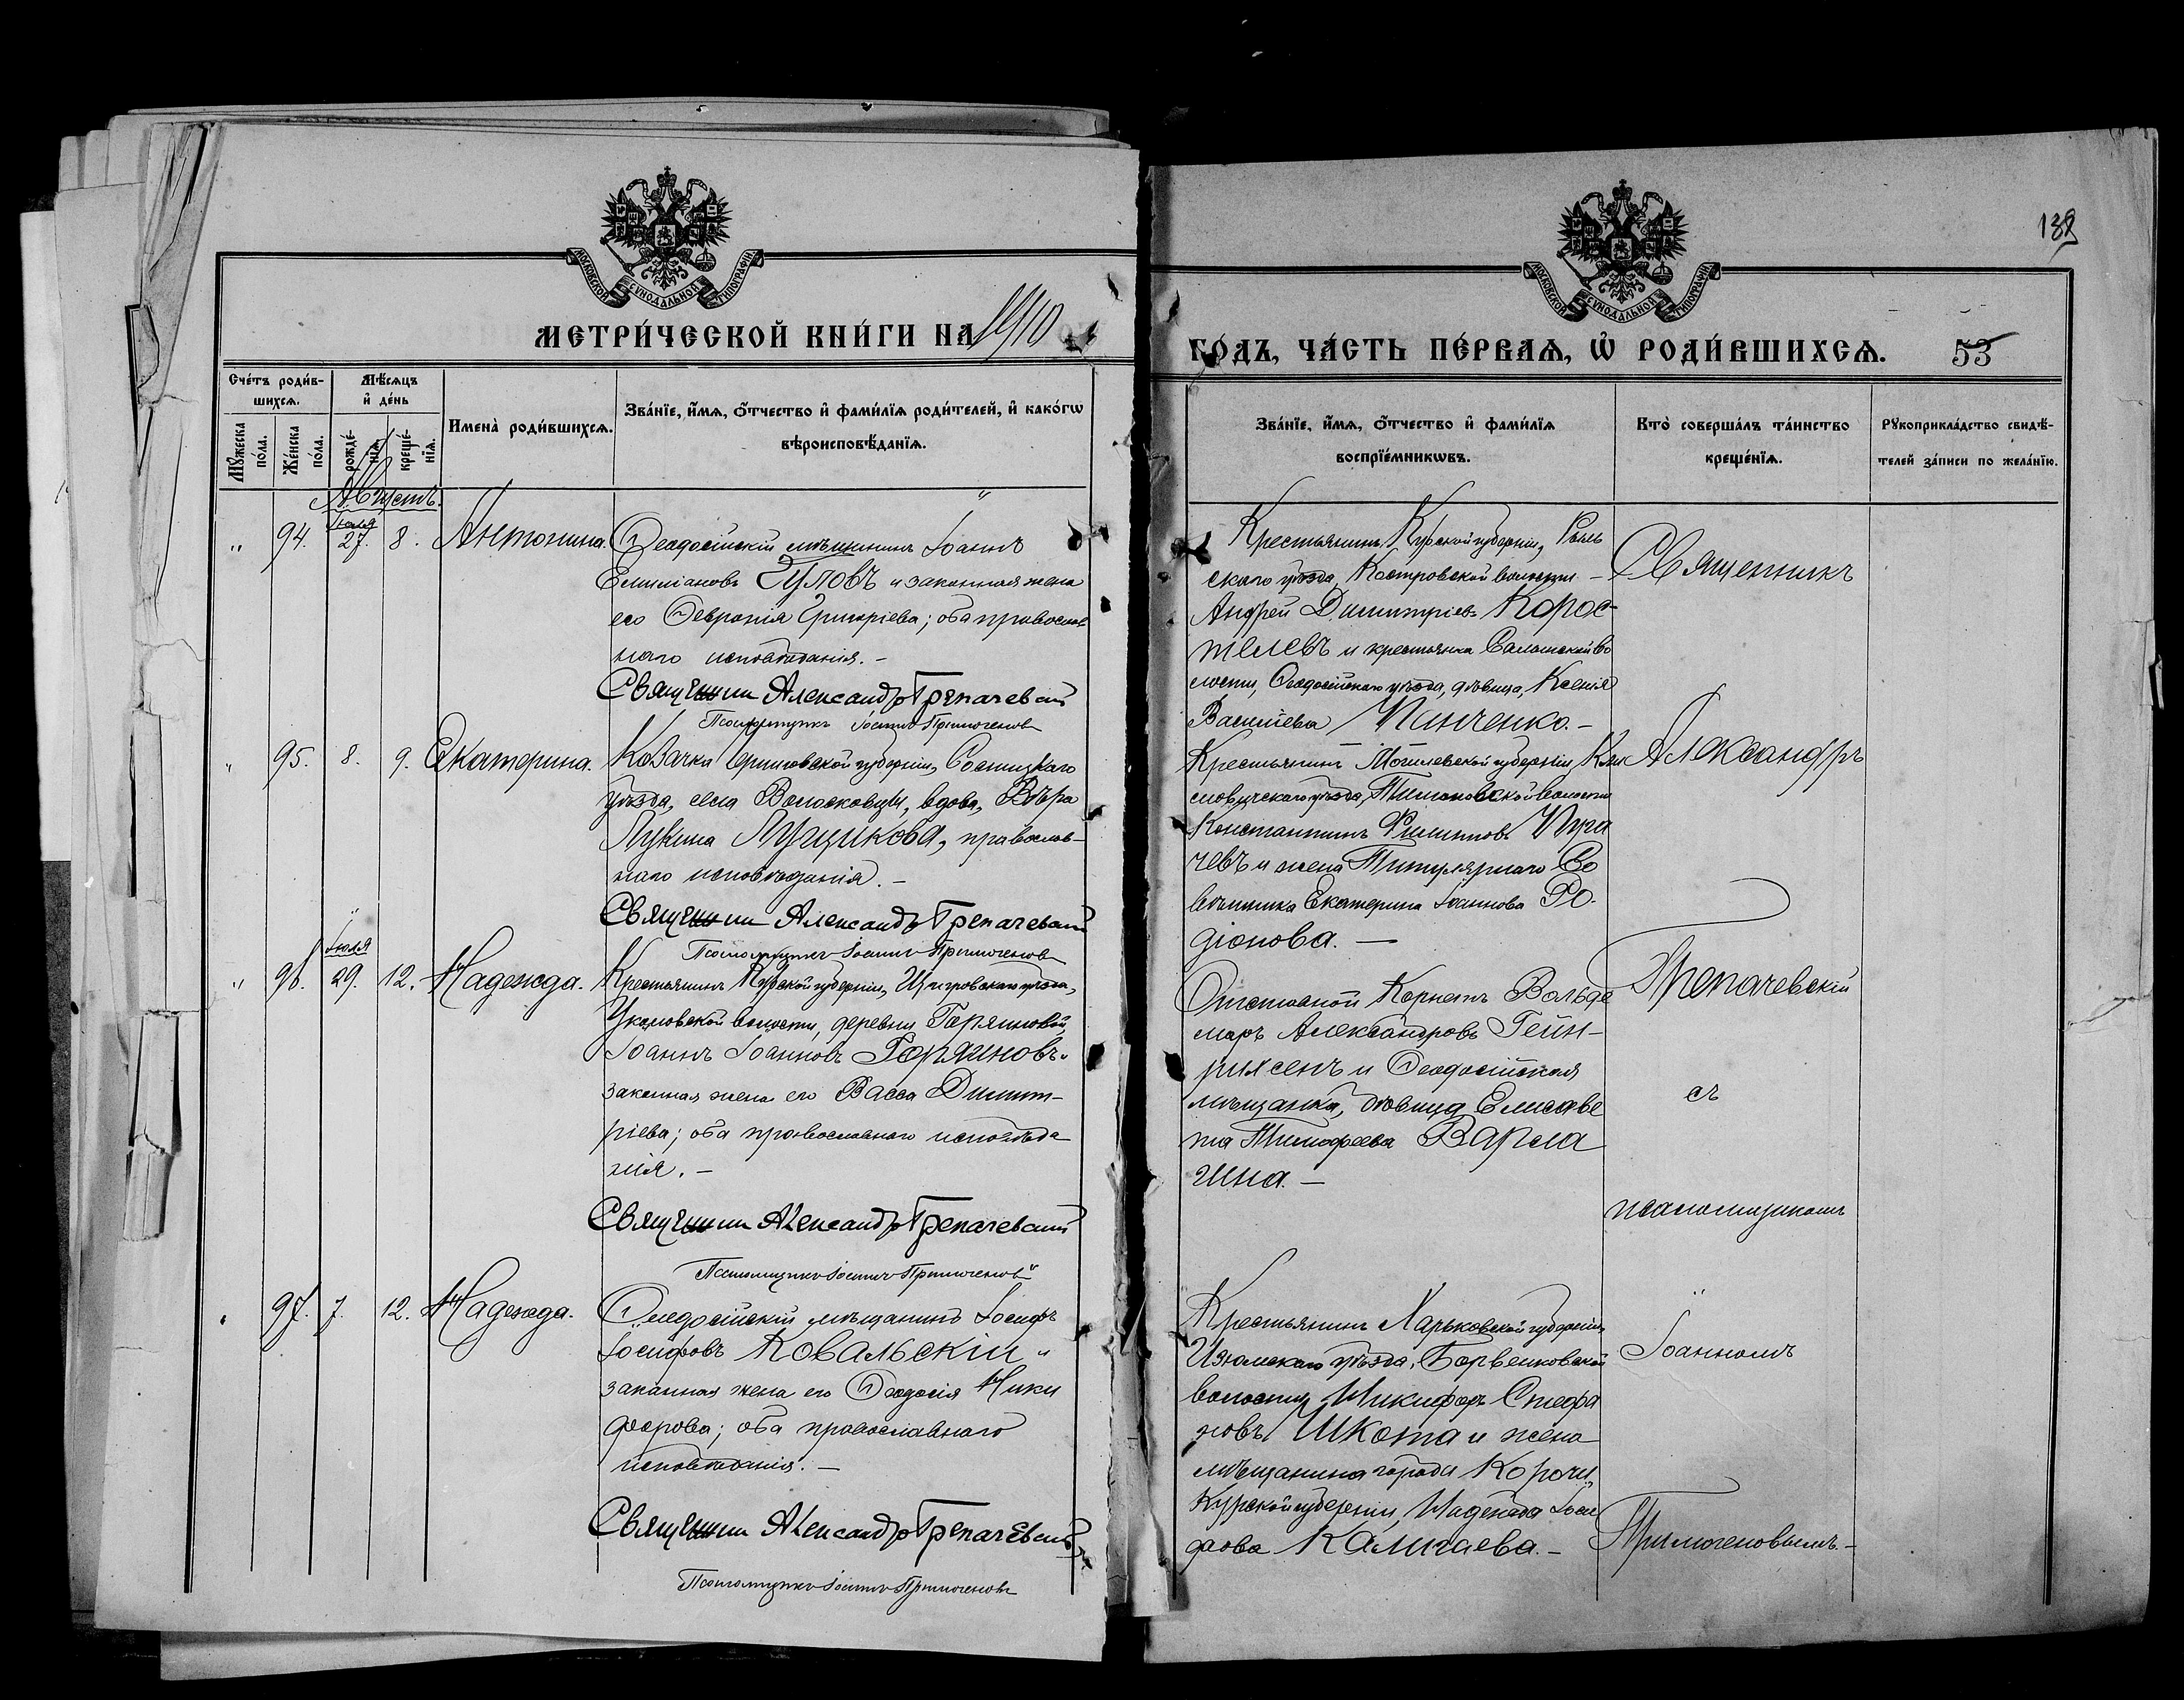 МОСКОВСКОЙ СѴНОДАЛЬНОЙ ТИПОГРАФІИ
МЕТРИ́ЧЕСКОЙ КНИ́ГИ НА 1910
Сче́тъ роди́в-
шихсѧ.
Мѣ́сѧцъ
и҆ де́нь
Мꙋ́жеска
по́ла.
Же́нска
по́ла.
рожде́-
нїѧ.
креще́-
нїѧ.
Имена̀ роди́вшихсѧ.
Зва́нїе, и҆́мѧ, ѻ҆́тчество и҆ фами́лїѧ роди́телей, и҆ како́гѡ
вѣроисповѣ́данїѧ.
Августъ.
„ 94. Іюля 27. 8. Антонина.
Ѳеодосійскій мѣщанинъ Іоаннъ
Емиліановъ Зуловъ и законная жена
его Ѳевронія Григоріева; оба православ
наго исповѣданія. –
Священникъ Александръ Трепачевскій
Псаломщикъ Іоаннъ Примогеновъ
„ 95. 8. 9. Екатерина.
Козачка Черниговской губерніи, Сосницкаго
уѣзда, села Волосковцы, вдова, Вѣра
Лукина Лущикова, православ-
наго исповѣданія. –
Священникъ Александръ Трепачевскій
Псаломщикъ Іоаннъ Примогеновъ
„ 96. Іюля 29. 12. Надежда.
Крестьянинъ Курской губерніи, Щигровскаго уѣзда,
Уколовской волости, деревни Горяиновой,
Іоаннъ Іоанновъ Горяиновъ и
законная жена его Васса Димит-
ріева; оба православнаго исповѣда
нія. –
Священникъ Александръ Трепачевскій
Псаломщикъ Іоаннъ Примогеновъ
97. 7. 12. Надежда.
Ѳеодосійскій мѣщанинъ Іосифъ
Іосифовъ Ковальскій и
законная жена его Ѳеодосія Ники
форова; оба православнаго
исповѣданія. –
Священникъ Александръ Трепачевскій
Псаломщикъ Іоаннъ Примогеновъ
139
МОСКОВСКОЙ СѴНОДАЛЬНОЙ ТИПОГРАФІИ
ГО́ДЪ, ЧА́СТЬ ПЕ́РВАѦ, Ѡ҆ РОДИ́ВШИХСѦ. 53
Зва́нїе, и҆́мѧ, ѻ҆́тчество и҆ фами́лїѧ
воспрїе́мникѡвъ.
Кто̀ соверша́лъ та́инство
креще́нїѧ.
Рꙋкоприкла́дство свидѣ́-
телей за́писи по жела́нїю.
Крестьянинъ Курской губерніи, Рыль
скаго уѣзда, Костровской волости –
Андрей Димитріевъ Корос-
телевъ и крестьянка Салынской во
лости, Ѳеодосійскаго уѣзда, дѣвица, Ксенія
Васильева Панченко. –
Крестьянинъ Могилевской губерніи, Кли
мовичскаго уѣзда, Тимоновской волости
Константинъ Филипповъ Пуга
чевъ и жена Титулярнаго Со
вѣтника Екатерина Іоаннова Ро-
діонова. –
Отставной Корнетъ Вольде
маръ Александровъ Гейн-
рихсенъ и Ѳеодосійская
мѣщанка, дѣвица Елисаве
та Тимофеева Варла
гина. –
Крестьянинъ Харьковской губерніи,
Изюмскаго уѣзда, Барвенковской
волости, Никифоръ Стефа
новъ Шкота и жена
мѣщанина города Корочи,
Курской губерніи, Надежда Іоси
фова Калигаева. –
Священникъ
Александръ
Трепачевскій
съ
псаломщикомъ
Іоанномъ
Примогеновымъ. –